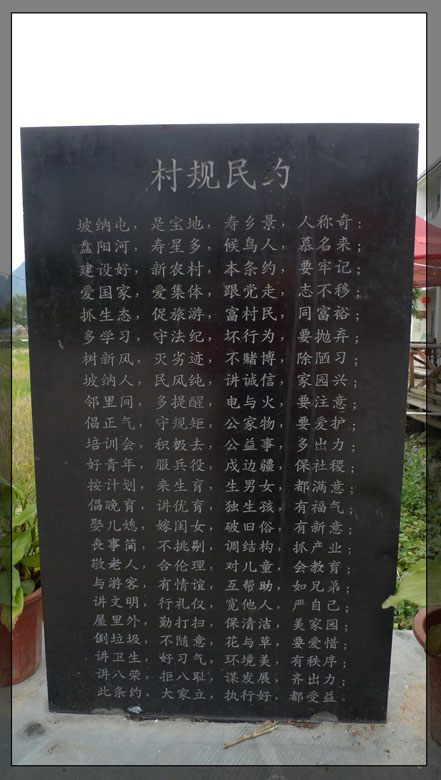 村规民约
坡纳屯，是宝地，寿乡景，人称奇；
盘阳河，寿星多，候鸟人，慕名来；
建设好，新农村，本条约，要牢记；
爱国家，爱集体，跟党走，志不移；
抓生态，促旅游，富村民，同富裕；
多学习，守法纪，坏行为，要抛弃；
树新风，灭劣迹，不赌博，除陋习；
坡纳人，民风纯，讲诚信，家园兴；
邻里间，多提醒，电与火，要注意；
倡正气，守规矩，公家物，要爱护；
培训会，积极去，公益事，多出力；
好青年，服兵役，戍边疆，保社稷；
按计划，来生育，生男女，都满意；
倡晚育，讲优育，独生孩，有福气；
娶儿媳，嫁闺女，破旧俗，有新意；
丧事简，不挑剔，调结构，抓产业；
敬老人，合伦理，对儿童，会教育；
与游客，有情谊，互帮助，如兄弟；
讲文明，行礼仪，宽他人，严自己；
屋里外，勤打扫，保清洁，美家园；
倒垃圾，不随意，花与草，要爱惜；
讲卫生，好习气，环境美，有秩序；
讲八荣，拒八耻，谋发展，齐出力；
此条约，大家立，执行好，都受益。